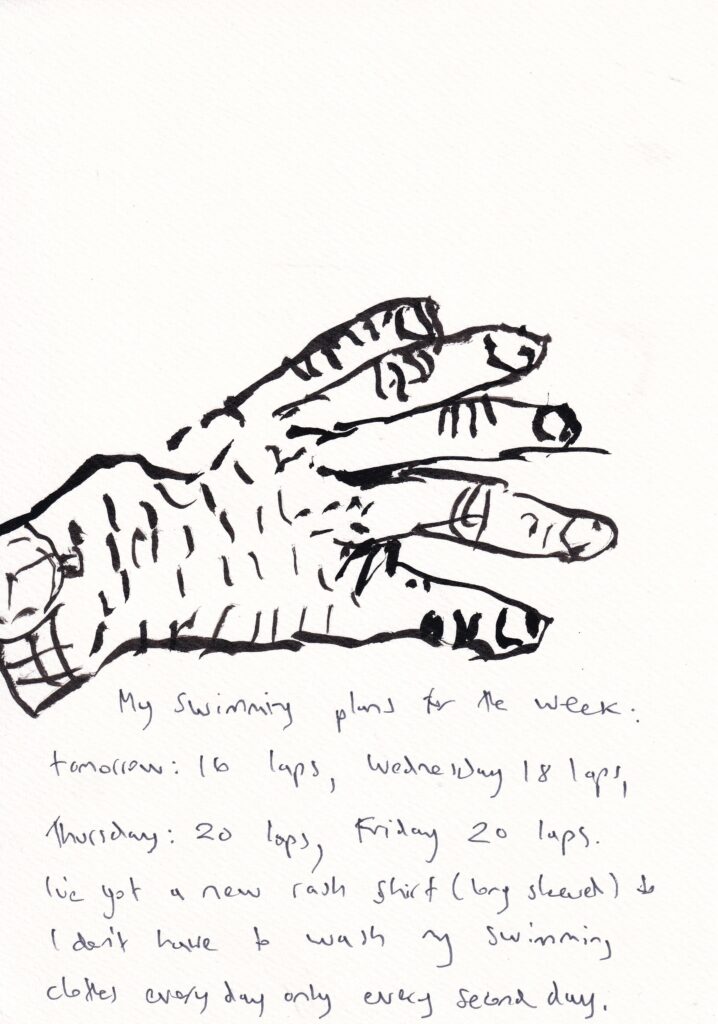 My swimming plans for the week:
tomorrow: 16 laps, Wednesday 18 laps,
Thursday: 20 laps, Friday 20 laps.
I've got a new rash shirt (long sleeved) so
I don't have to wash my swimming
clothes every day only every second day.